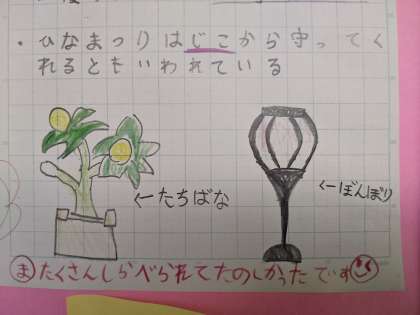 ・ひなまつりはじこから守ってく
れるともいわれている
←たちばな
←ぼんぼり
ま たくさんしらべられてたのしかったです